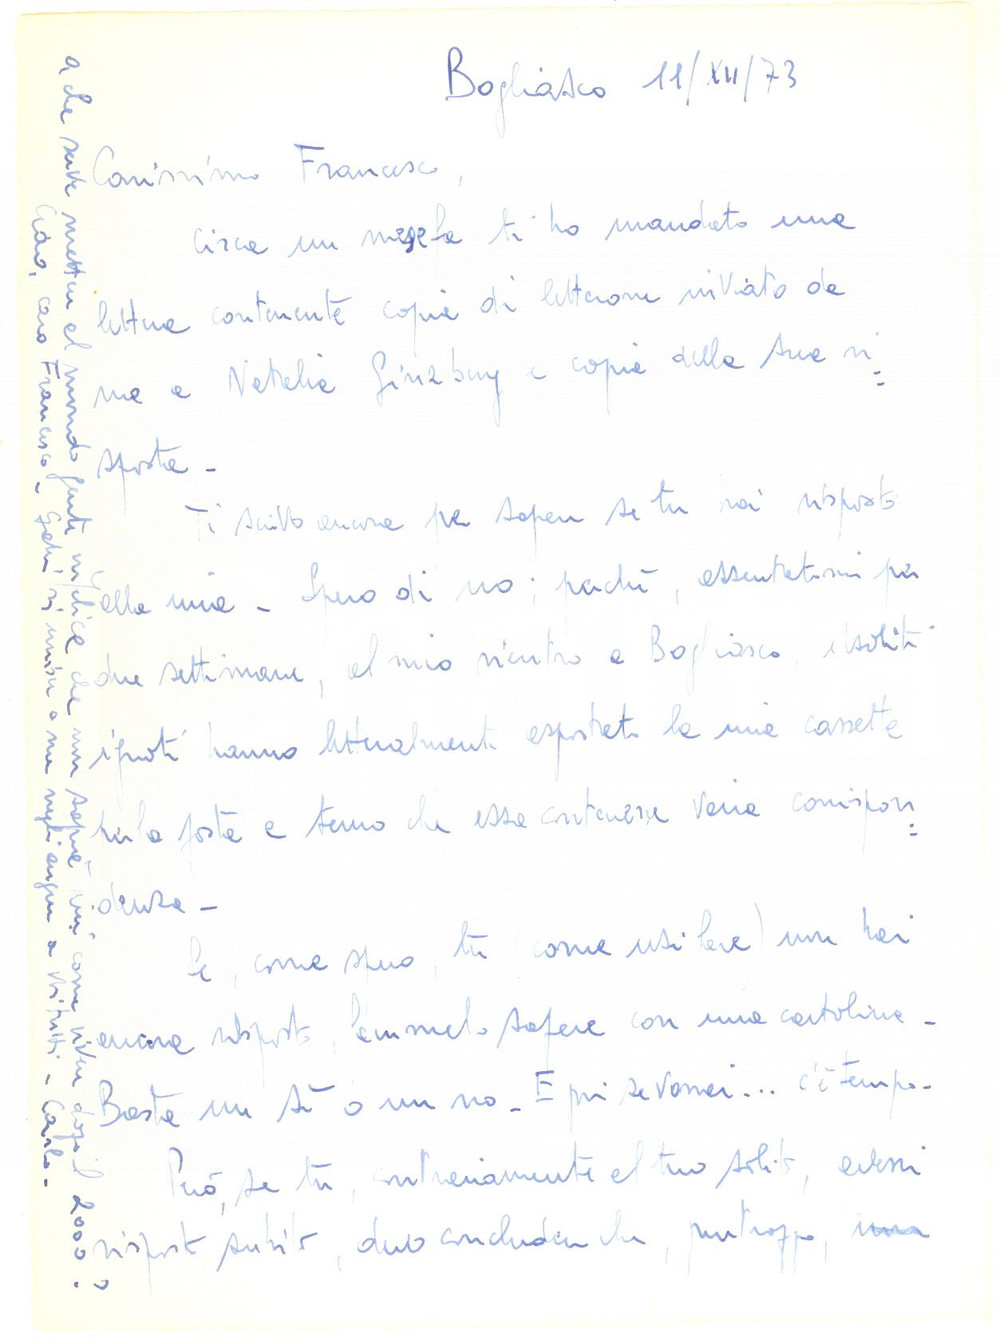 Bogliasco 11/XII/73
Carissimo Francesco,
circa un mese fa ti ho mandato una
lettera contenente copia di letterone inviato da
me a Natalia Ginzburg e copia della sua ri=
sposta -
Ti scrivo ancora per sapere se tu hai risposto
alla mia - Spero di no; perché, assentatomi per
due settimane, al mio rientro a Bogliasco, i soliti
ignoti hanno letteralmente asportato la mia cassetta
per la posta e temo che essa contenesse varia corrispon=
denza -
Se, come spero, tu (come usi fare) non hai
ancora risposto, fammelo sapere con una cartolina -
Basta un sì o un no - E poi se vorrai... c'è tempo -
Però, se tu, contrariamente al tuo solito, avessi
risposto subito, devo concludere che, purtroppo,
a che serve mettere al mondo gente infelice che non saprà come vivere dopo il 2000?
Ciao, caro Francesco - a tutti - Carlo -